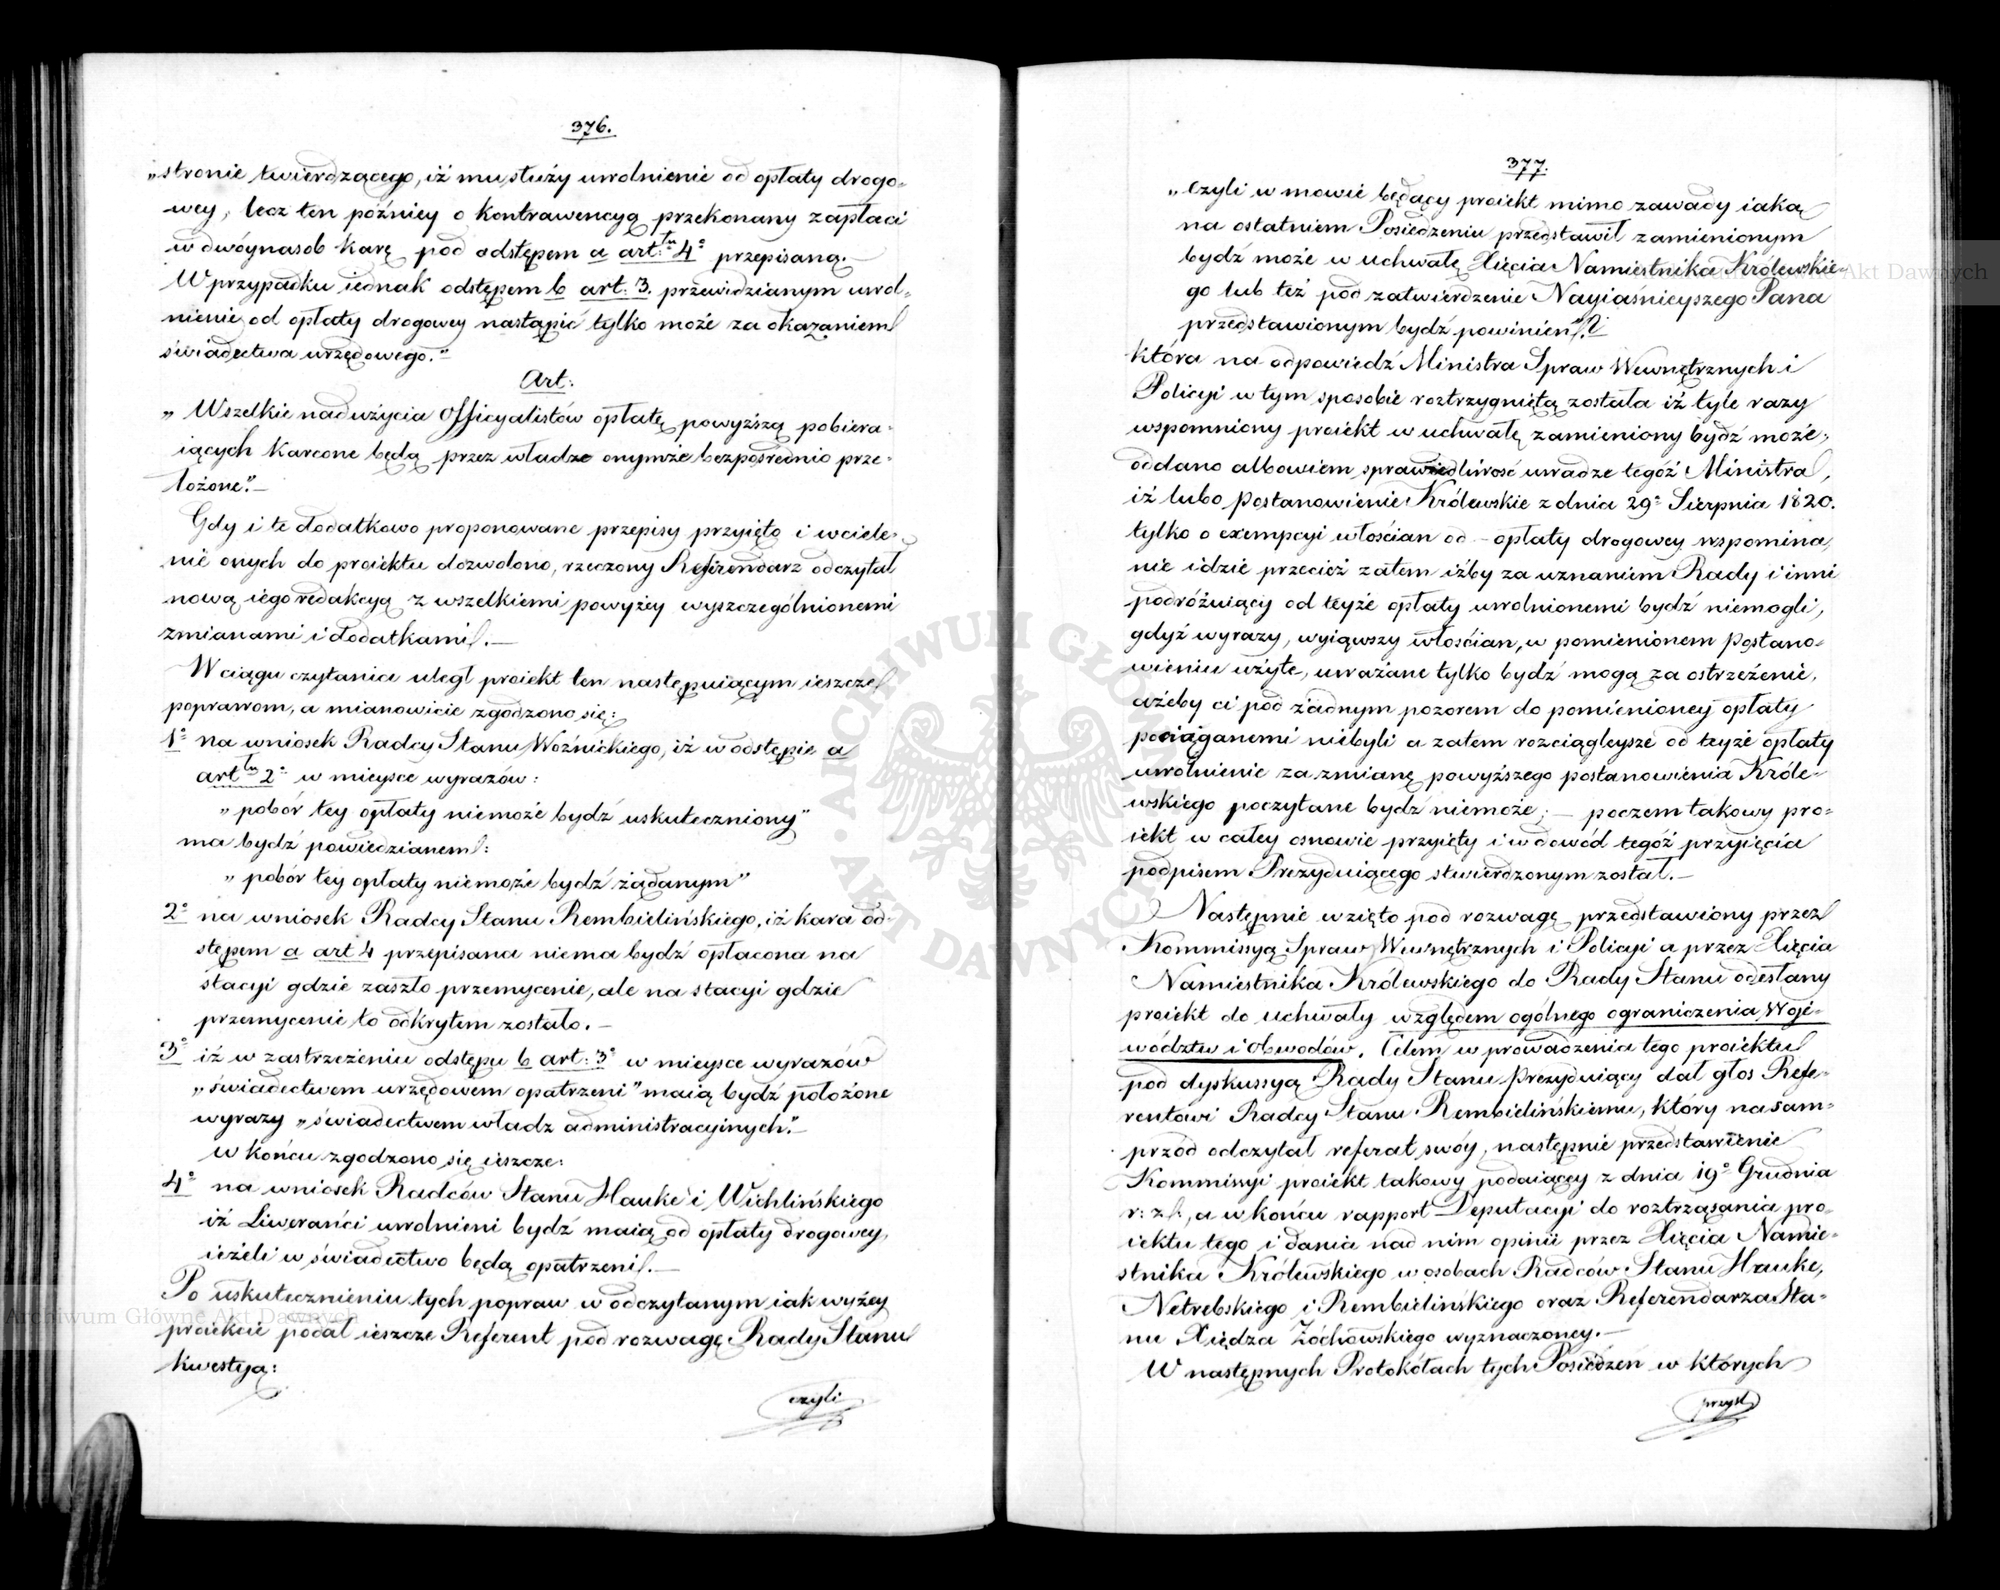 376.
„stronie twierdzącego, iż mu służy uwolnienie od opłaty drogo-
wey, lecz ten późniey o kontrawencyą przekonany zapłaci
w dwóynasob karę pod odstępem a art:tu 4° przepisaną.
W przypadku iednak odstępem b art: 3. przewidzianym uwol-
nienie od opłaty drogowey nastąpić tylko może za okazaniem
świadectwa urzędowego."
Art:
„Wszelkie nadużycia officyalistów opłatę powyższą pobiera-
iących karcone będą przez władze onymże bezpośrednio prze-
łożone."—
Gdy i te dodatkowo proponowane przepisy przyięto i wciele-
nie onych do proiektu dozwolono, rzeczony Referendarz odczytał
nową iego redakcyą z wszelkiemi powyżey wyszczególnionemi
zmianami i dodatkami.—
W ciągu czytania uległ proiekt ten następuiącym ieszcze
poprawom, a mianowicie zgodzono się:
1° na wniosek Radcy Stanu Woźnickiego, iż w odstępie a
art:tu 2° w mieysce wyrazów:
„pobór tey opłaty niemoże bydź uskuteczniony"
ma bydź powiedzianem:
„pobór tey opłaty niemoże bydź żądanym"
2° na wniosek Radcy Stanu Rembielińskiego, iż kara od-
stępem a art 4 przepisana niema bydź opłacona na
stacyi gdzie zaszło przemycenie, ale na stacyi gdzie
przemycenie to odkrytem zostało.—
3° iż w zastrzeżeniu odstępu b art: 3° w mieysce wyrazów
„świadectwem urzędowem opatrzeni" maią bydź położone
wyrazy „świadectwem władz administracyinych."—
w końcu zgodzono się ieszcze:
4° na wniosek Radców Stanu Hauke i Wichlińskiego
iż Liweranci uwolnieni bydź maią od opłaty drogowey,
ieżeli w świadectwo będą opatrzeni.—
Po uskutecznieniu tych popraw w odczytanym iak wyżey
proiekcie podał ieszcze Referent pod rozwagę Rady Stanu
kwestyą:
czyli
377.
„czyli w mowie będący proiekt mimo zawady iaką
na ostatniem Posiedzeniu przedstawił zamienionym
bydź może w uchwałę Xięcia Namiestnika Królewskie-
go lub też pod zatwierdzenie Nayiaśnieyszego Pana
przedstawionym bydź powinien"?
która na odpowiedź Ministra Spraw Wewnętrznych i
Policyi w tym sposobie roztrzygniętą została iż tyle razy
wspomniony proiekt w uchwałę zamieniony bydź może,
oddano albowiem sprawiedliwość uwadze tegóż Ministra,
iż lubo Postanowienie Królewskie z dnia 29° Sierpnia 1820.
tylko o exempcyi włościan od – opłaty drogowey wspomina,
nie idzie przecież zatem iżby za uznaniem Rady i inni
podróżuiący od teyże opłaty uwolnionemi bydź niemogli,
gdyż wyrazy, wyiąwszy włościan, w pomienionem Postano-
wieniu użyte, uważane tylko bydź mogą za ostrzeżenie,
ażeby ci pod żadnym pozorem do pomienioney opłaty
pociąganemi niebyli a zatem rozciągleysze od teyże opłaty
uwolnienie za zmianę powyższego postanowienia Króle-
wskiego poczytane bydź niemoże; — poczem takowy pro-
iekt w całey osnowie przyięty i w dowód tegóż przyięcia
podpisem Prezyduiącego stwierdzonym został.—
Następnie wzięto pod rozwagę przedstawiony przez
Kommissyą Spraw Wewnętrznych i Policyi a przez Xięcia
Namiestnika Królewskiego do Rady Stanu odesłany
proiekt do uchwały względem ogólnego ograniczenia Woje-
wództw i Obwodów. Celem wprowadzenia tego proiektu
pod dyskussyą Rady Stanu Prezyduiący dał głos Refe-
rentowi Radcy Stanu Rembielińskiemu, który na sam-
przód odczytał referat swóy, następnie przedstawienie
Kommissyi proiekt takowy podaiący z dnia 19° Grudnia
r: z:, a w końcu rapport Deputacyi do roztrząsania pro-
iektu tego i dania nad nim opinii przez Xięcia Namie-
stnika Królewskiego w osobach Radców Stanu Hauke,
Netrebskiego i Rembielińskiego oraz Referendarza Sta-
nu Xiędza Żochowskiego wyznaczoney.—
W następnych Protokółach tych Posiedzeń w których
przyst
ARCHIWUM GŁÓWNE AKT DAWNYCH
Archiwum Główne Akt Dawnych
Akt Dawnych